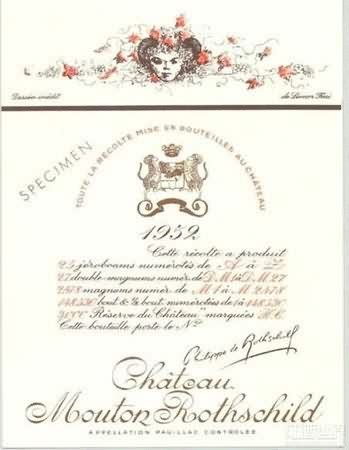 Dessin inédit
de Léonor Fini
SPECIMEN
TOUTE LA RÉCOLTE MISE EN BOUTEILLES AU CHÂTEAU
1952
Cette récolte a produit
25 jéroboams numérotés de A à Z
27 double-magnums numér. de D.M1 à D.M27
2478 magnums numér de M1 à M2478
148530 bout. & ½ bout. numérotées de 1 à 148530
3000 "Réserve du Château" marquées R.C.
Cette bouteille porte le No
Philippe de Rothschild
Château
Mouton Rothschild
APPELLATION PAUILLAC CONTRÔLÉE